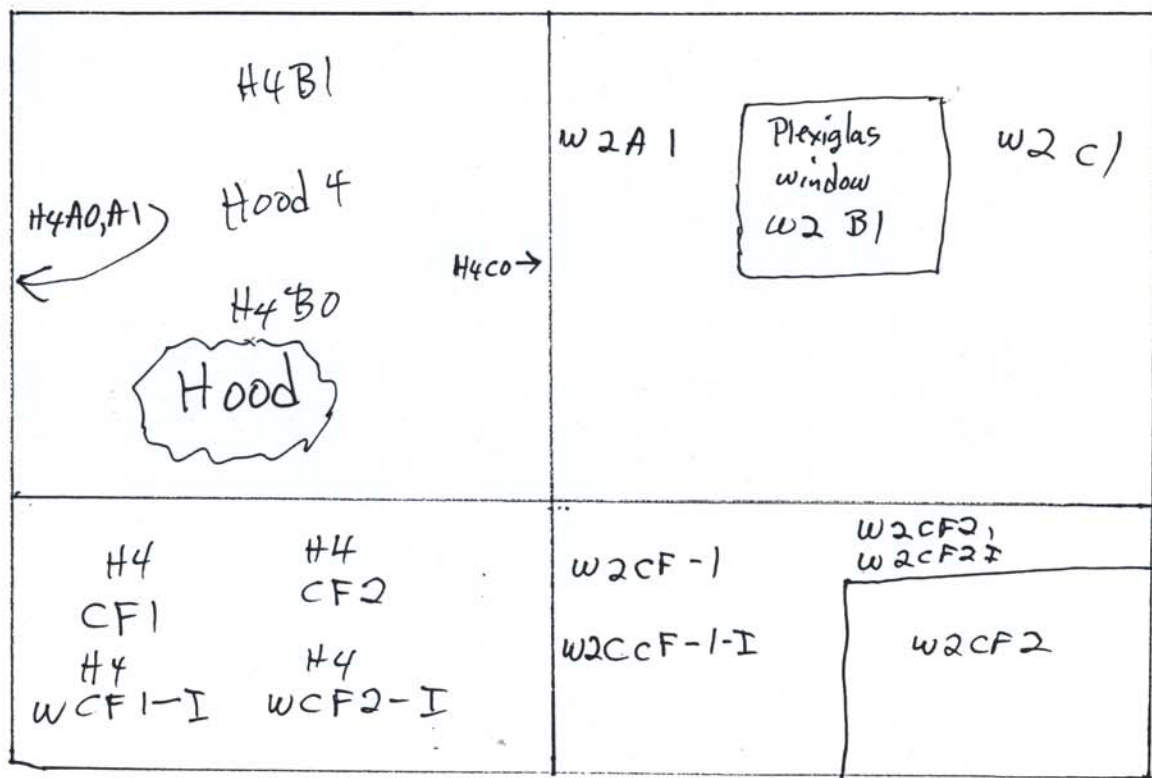 H4B1
Hood 4
H4A0,A1
H4B0
Hood
H4C0→
W2A1
Plexiglas
window
W2 B1
W2 C1
H4
CF1
H4
WCF1-I
H4
CF2
H4
WCF2-I
W2CF-1
W2CCF-1-I
W2CF2,
W2CF2I
W2CF2